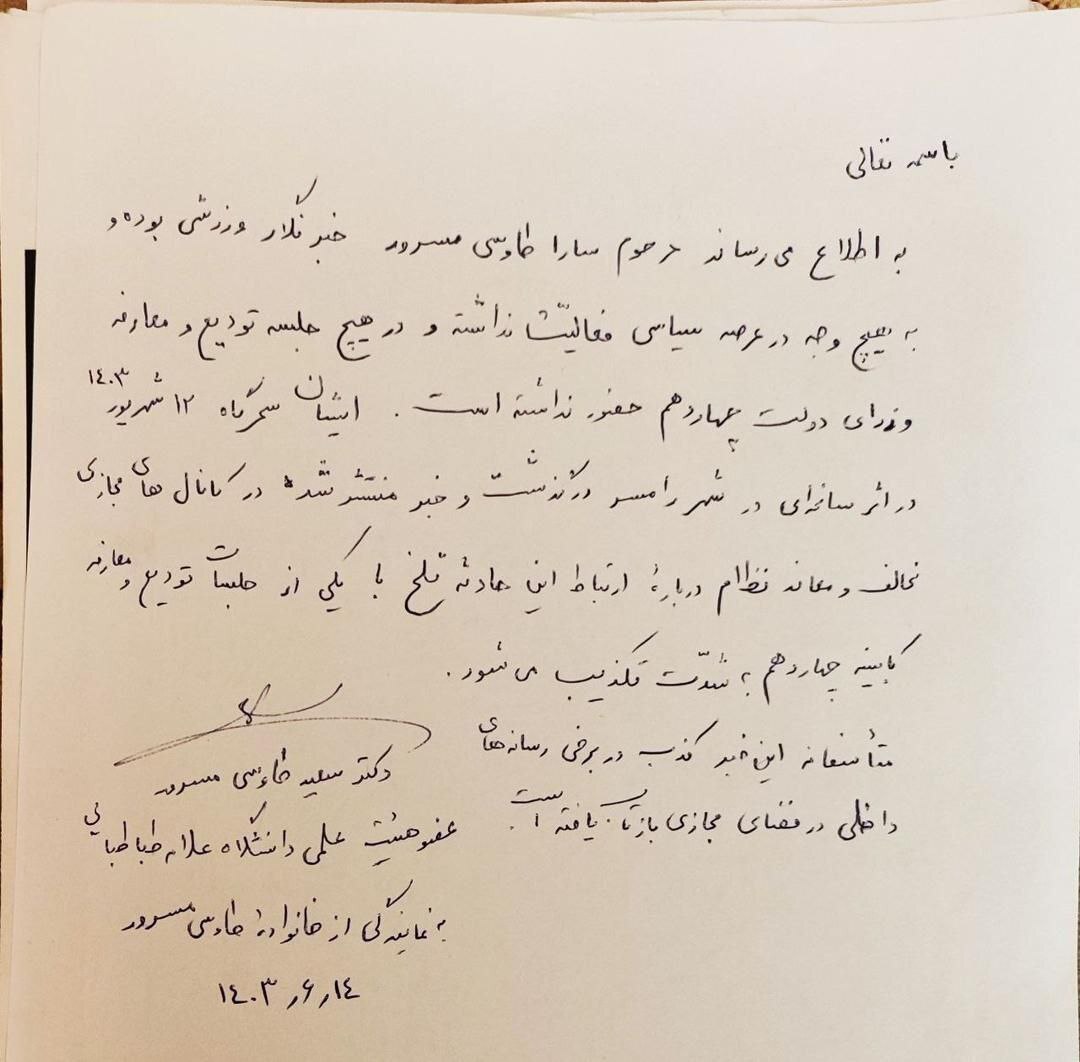 باسمه تعالی
به اطلاع می‌رساند مرحوم سارا طاوسی مسرور خبرنگار ورزشی بوده و
به هیچ وجه در عرصه سیاسی فعالیتی نداشته و در هیچ جلسه تودیع و معارفه
وزرای دولت چهاردهم حضور نداشته است. ایشان سحرگاه ۱۲ شهریور ۱۴۰۳
در اثر سانحه‌ای در شهر رامسر درگذشت و خبر منتشر شده در کانال های مجازی
مخالف و معاند نظام دربارهٔ ارتباط این حادثه تلخ با یکی از جلسات تودیع و معارفه
کابینه چهاردهم به شدّت تکذیب می شود.
متأسفانه این خبر کذب در برخی رسانه‌های
داخلی در فضای مجازی بازتاب یافته است.
دکتر سعید طاوسی مسرور
عضو هیئت علمی دانشگاه علامه طباطبائی
به نمایندگی از خانوادهٔ طاوسی مسرور
۱۴ر۶ر۱۴۰۳